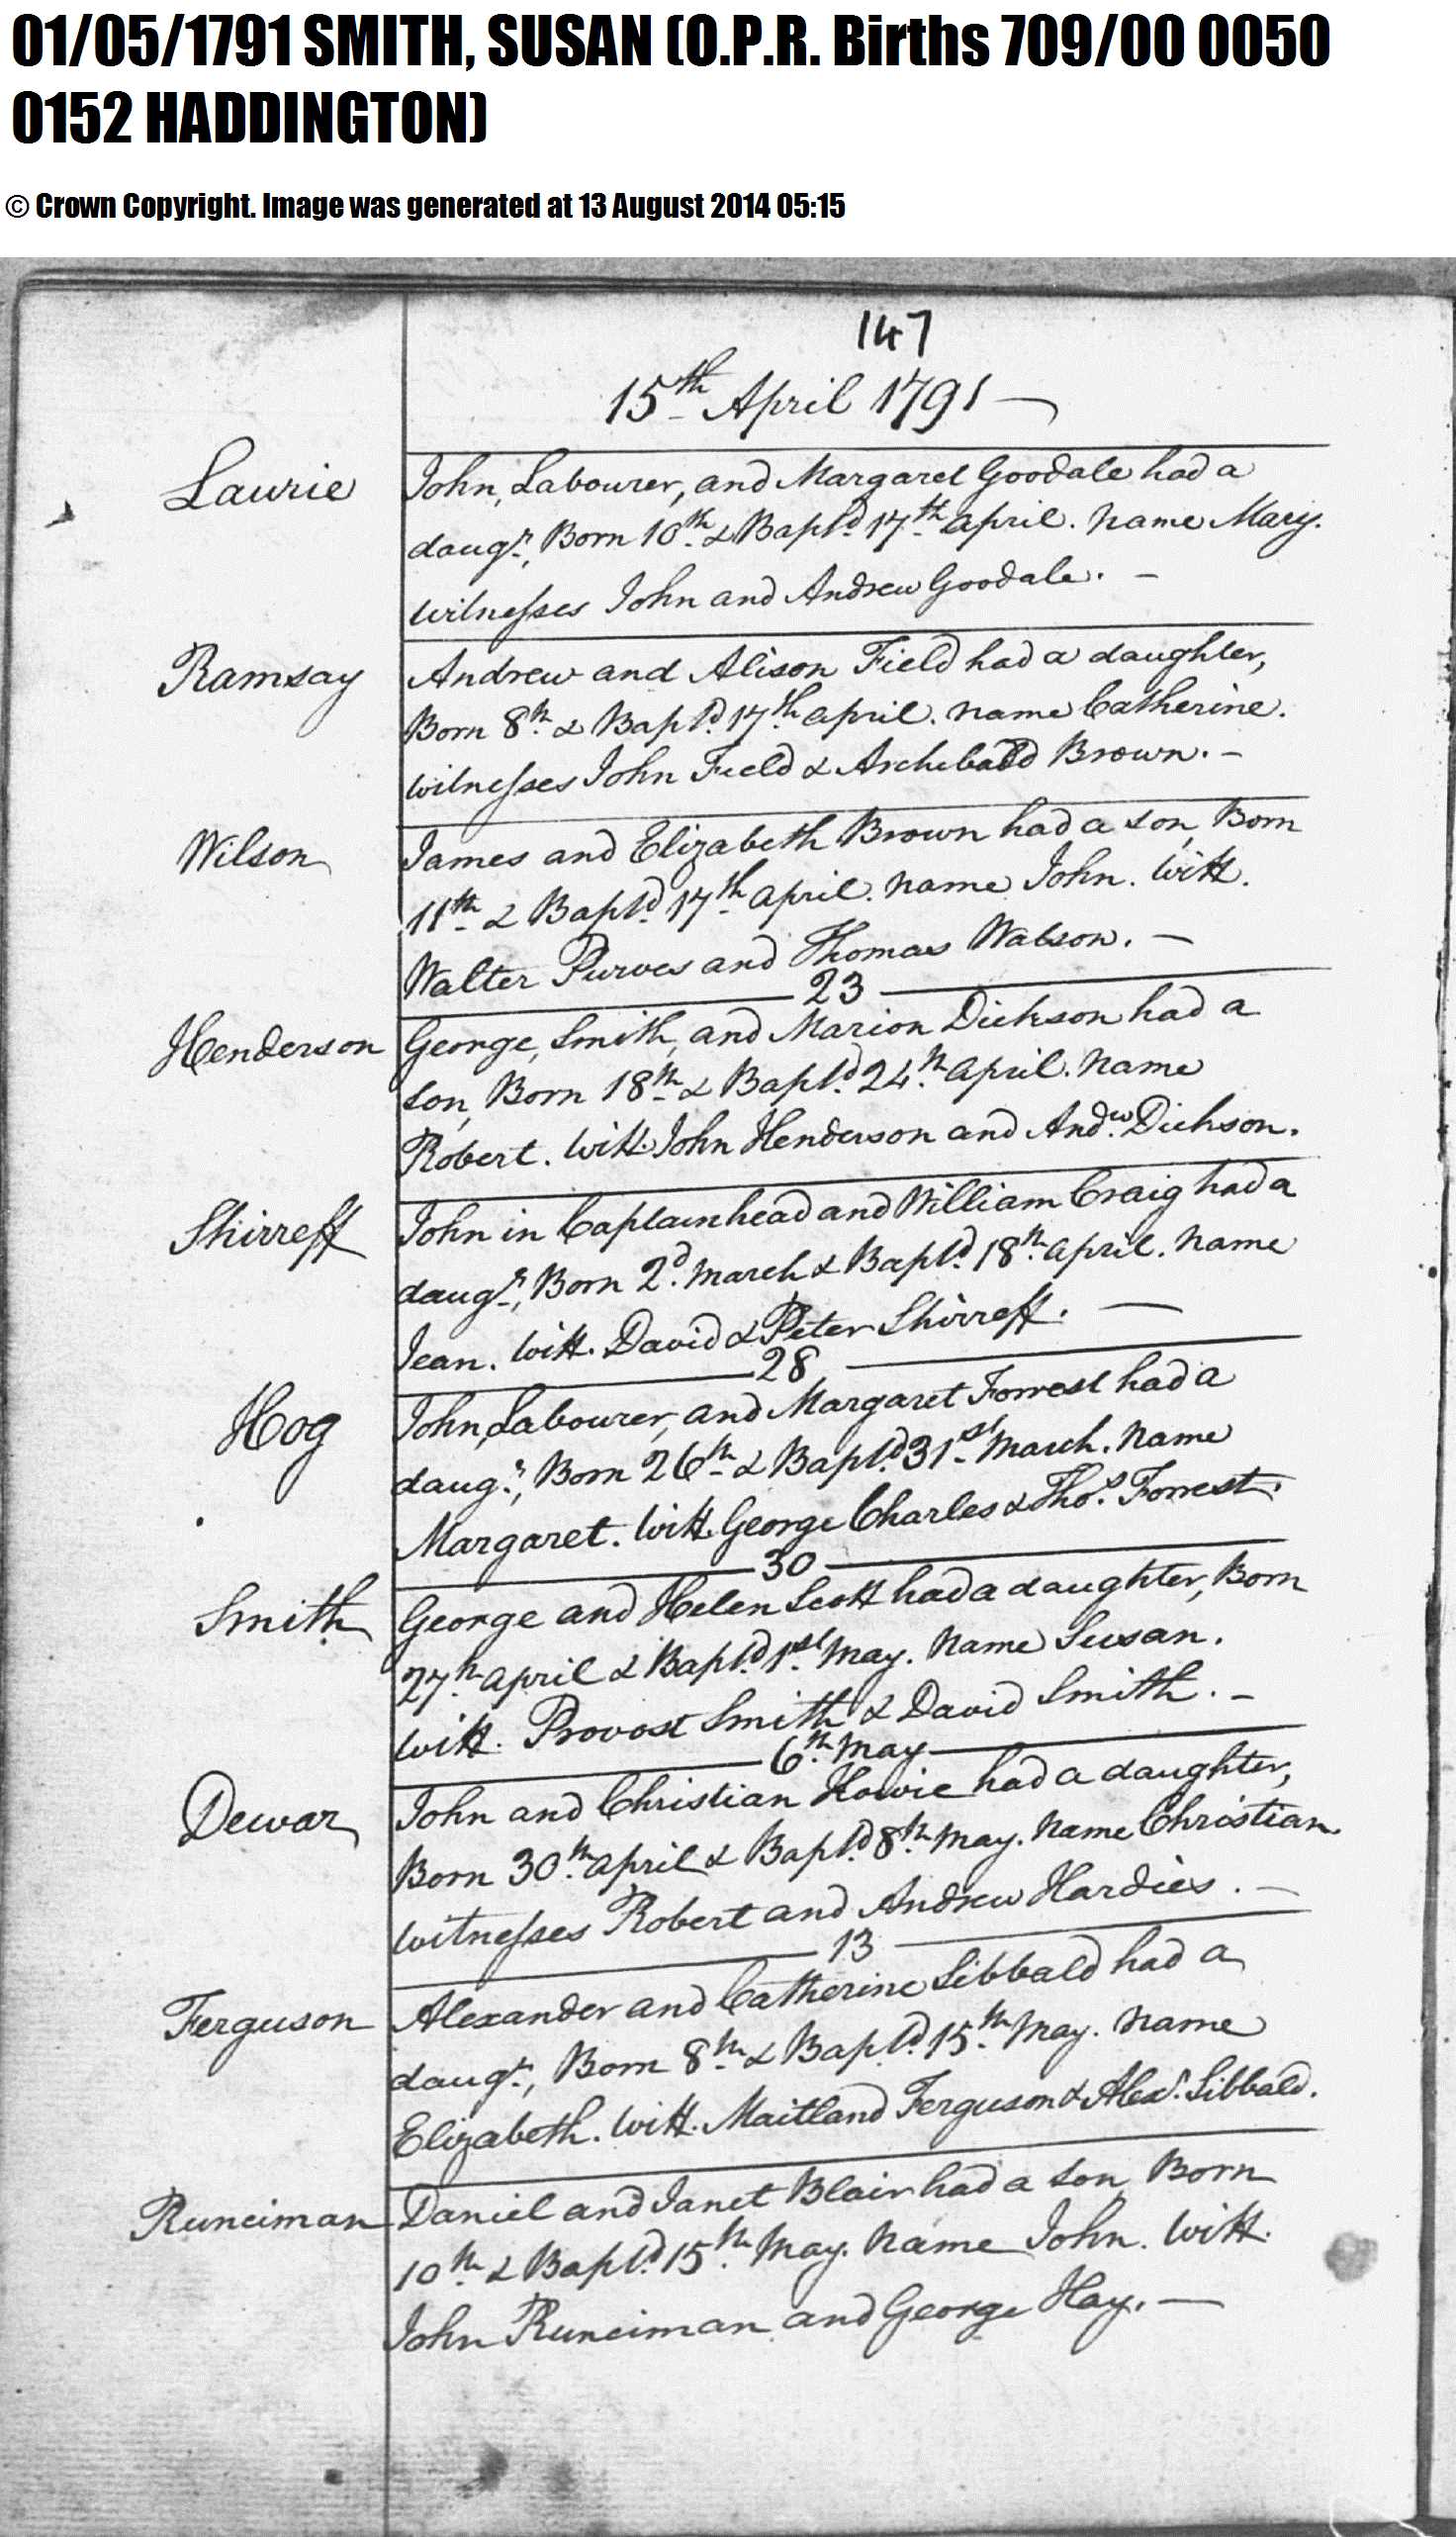 01/05/1791 SMITH, SUSAN (O.P.R. Births 709/00 0050
0152 HADDINGTON)
© Crown Copyright. Image was generated at 13 August 2014 05:15
147
15th April 1791
Laurie John, Labourer, and Margaret Goodale had a
daugr, Born 10th & Baptd 17th April. Name Mary.
Witnesses John and Andrew Goodale. -
Ramsay Andrew and Alison Field had a daughter,
Born 8th & Baptd 17th April. Name Catherine.
Witnesses John Field & Archibald Brown. -
Wilson James and Elizabeth Brown had a son, Born
11th & Baptd 17th April. Name John. Witt.
Walter Purves and Thomas Watson. -
23
Henderson George, Smith, and Marion Dickson had a
son, Born 18th & Baptd 24th April. Name
Robert. Witt. John Henderson and Andw Dickson.
Shirreff John in Captainhead and William Craig had a
daugr, Born 2d March & Baptd 18th April. Name
Jean. Witt. David & Peter Shirreff. -
28
Hog John, Labourer, and Margaret Forrest had a
daugr, Born 26th & Baptd 31st March. Name
Margaret. Witt. George Charles & Thos Forrest.
30
Smith George and Helen Scott had a daughter, Born
27th April & Baptd 1st May. Name Susan.
Witt. Provost Smith & David Smith. -
6th May
Dewar John and Christian Howie had a daughter,
Born 30th April & Baptd 8th May. Name Christian.
Witnesses Robert and Andrew Hardies. -
13
Ferguson Alexander and Catherine Sibbald had a
daugr, Born 8th & Baptd 15th May. Name
Elizabeth. Witt. Maitland Ferguson & Alexr Sibbald.
Runciman Daniel and Janet Blair had a son, Born
10th & Baptd 15th May. Name John. Witt.
John Runciman and George Hay. -